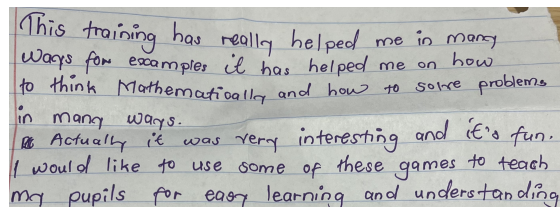 This training has really helped me in many
ways for examples it has helped me on how
to think Mathematically and how to solve problems
in many ways.
Actually it was very interesting and it's fun.
I would like to use some of these games to teach
my pupils for easy learning and understanding